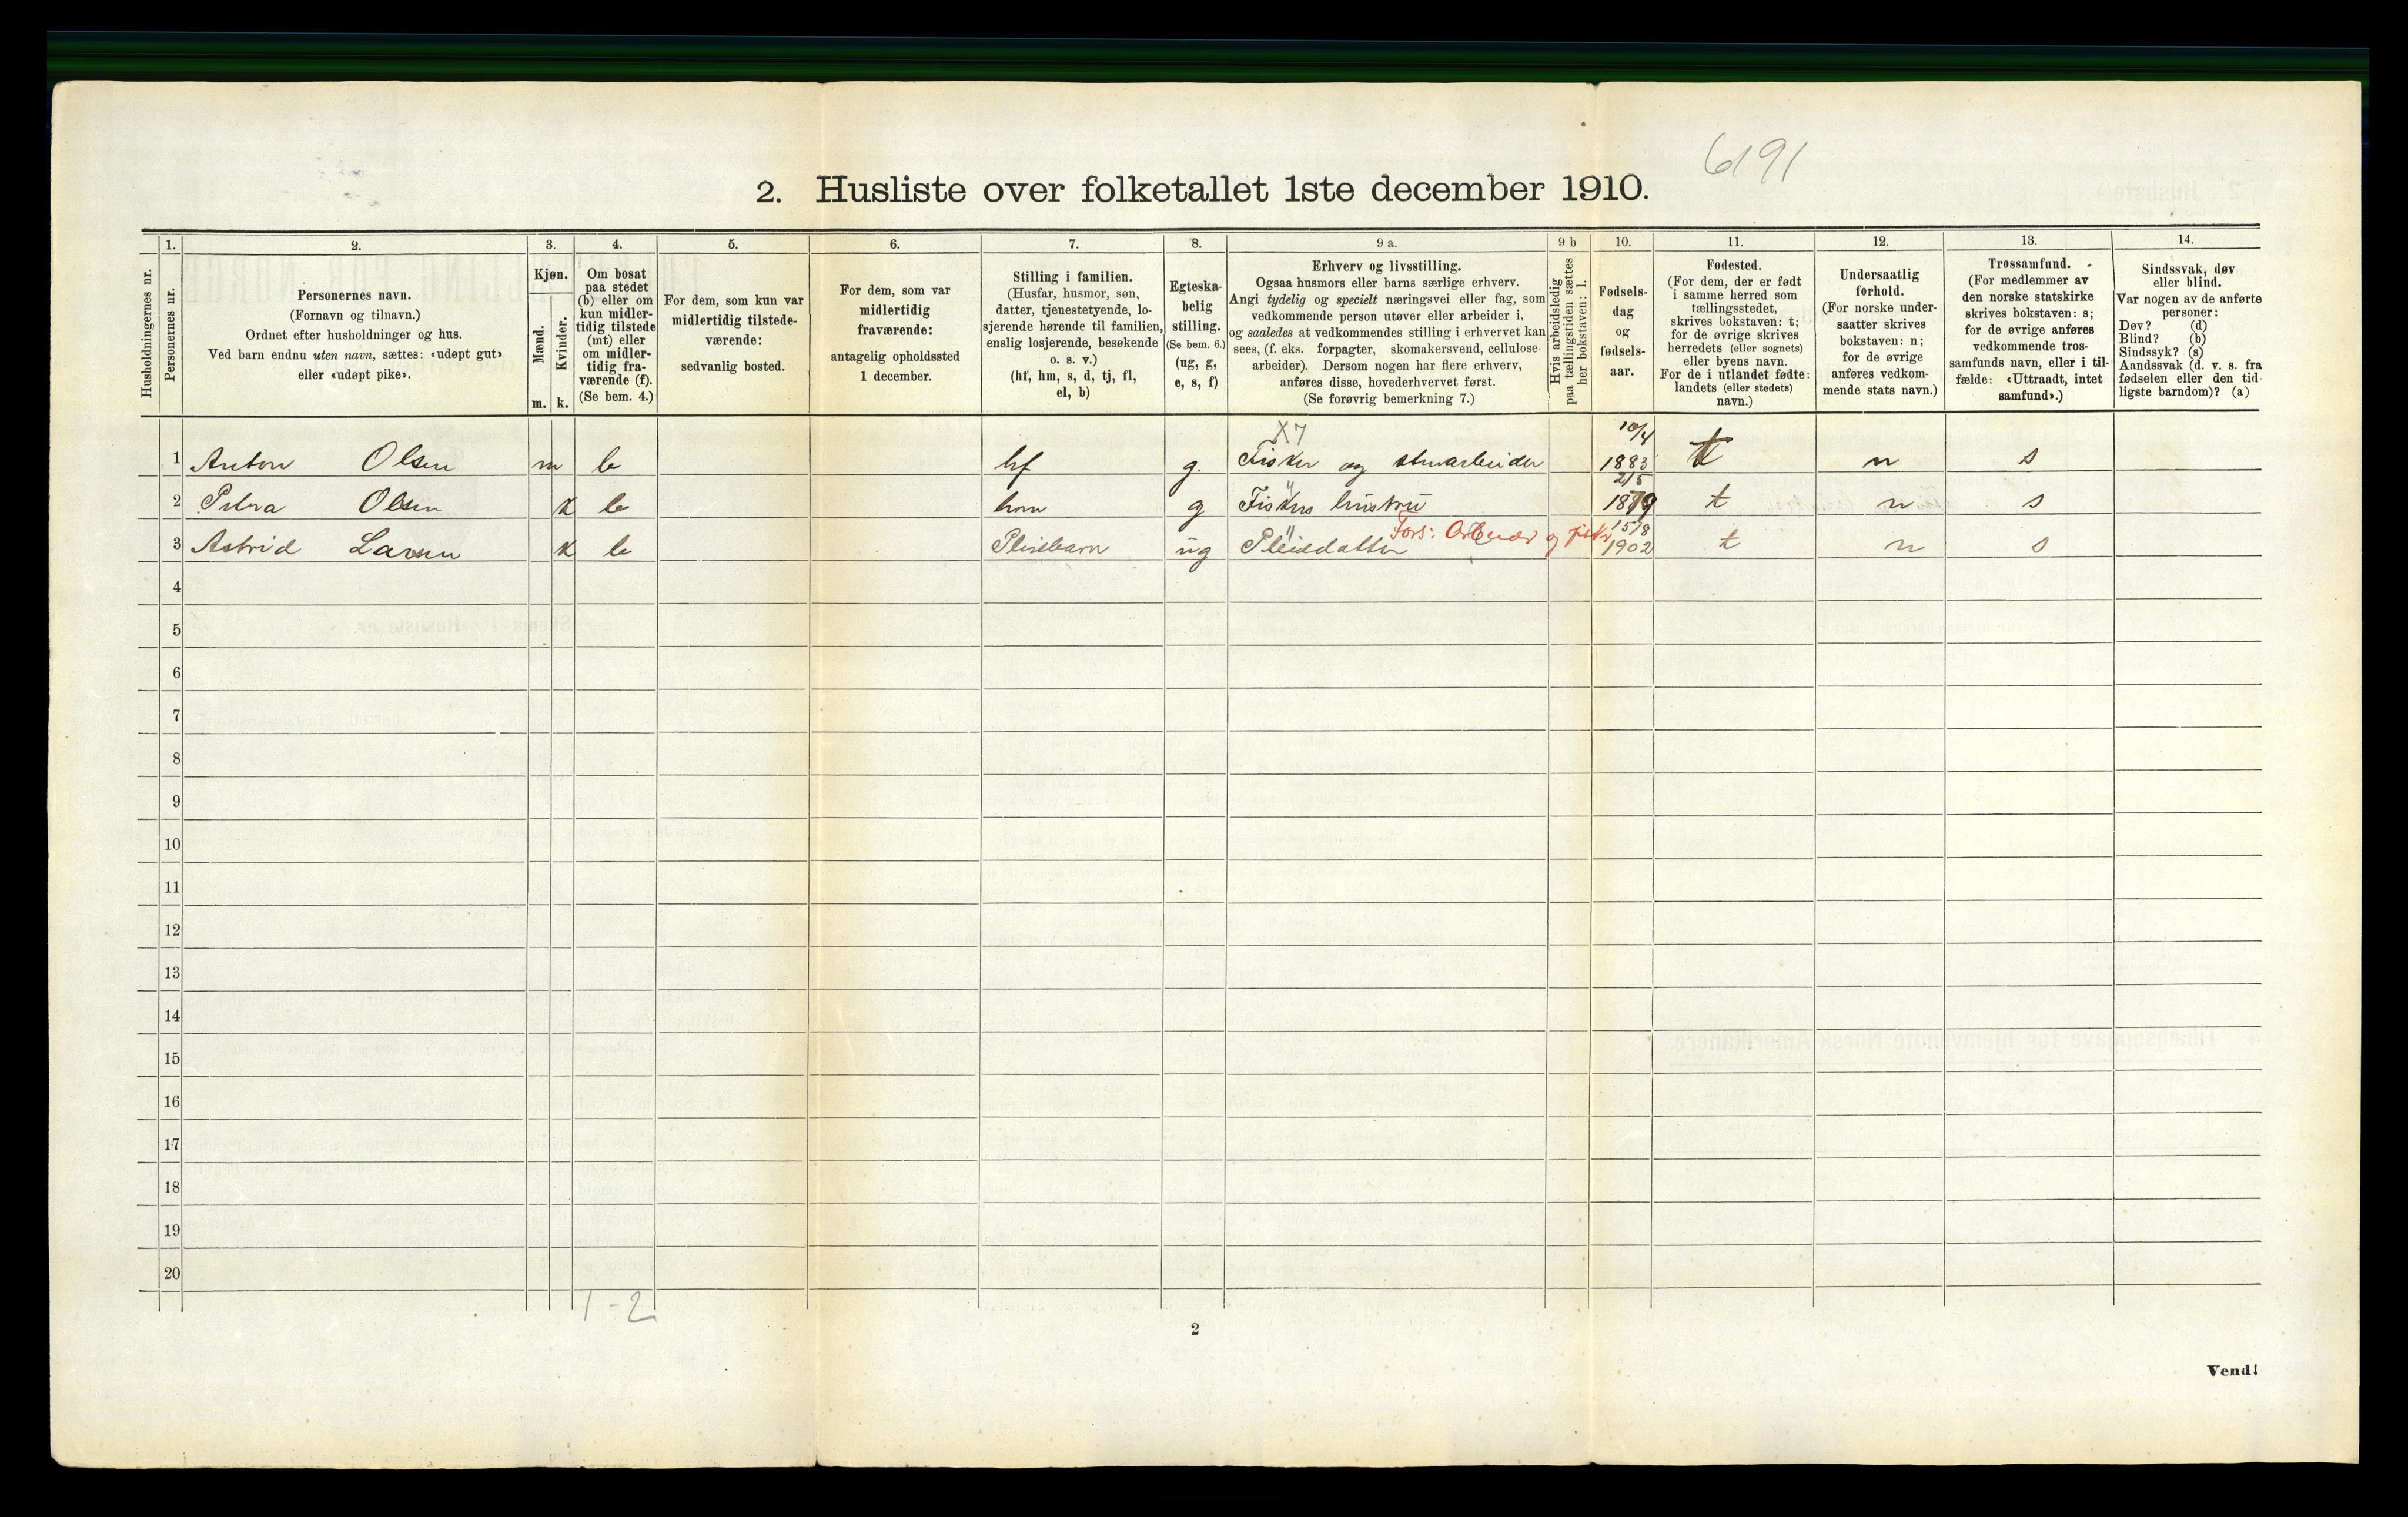 6191
2. Husliste over folketallet 1ste december 1910.
Husholdningernes nr.
1.
Personernes nr.
2.
Personernes navn.
(Fornavn og tilnavn.)
Ordnet efter husholdninger og hus.
Ved barn endnu uten navn, sættes: «udøpt gut»
eller «udøpt pike».
3.
Kjøn.
Mænd.
Kvinder.
m. k.
4.
Om bosat
paa stedet
(b) eller om
kun midler-
tidig tilstede
(mt) eller
om midler-
tidig fra-
værende (f).
(Se bem. 4.)
5.
For dem, som kun var
midlertidig tilstede-
værende:
sedvanlig bosted.
6.
For dem, som var
midlertidig
fraværende:
antagelig opholdssted
1 december.
7.
Stilling i familien.
(Husfar, husmor, søn,
datter, tjenestetyende, lo-
sjerende hørende til familien,
enslig losjerende, besøkende
o. s. v.)
(hf, hm, s, d, tj, fl,
el, b)
8.
Egteska-
belig
stilling.
(Se bem. 6.)
(ug, g,
e, s, f)
9 a.
Erhverv og livsstilling.
Ogsaa husmors eller barns særlige erhverv.
Angi tydelig og specielt næringsvei eller fag, som
vedkommende person utøver eller arbeider i,
og saaledes at vedkommendes stilling i erhvervet kan
sees, (f. eks. forpagter, skomakersvend, cellulose-
arbeider). Dersom nogen har flere erhverv,
anføres disse, hovederhvervet først.
(Se forøvrig bemerkning 7.)
9 b
Hvis arbeidsledig
paa tællingstiden sættes
her bokstaven: l.
10.
Fødsels-
dag
og
fødsels-
aar.
11.
Fødested.
(For dem, der er født
i samme herred som
tællingsstedet,
skrives bokstaven: t;
for de øvrige skrives
herredets (eller sognets)
eller byens navn.
For de i utlandet fødte:
landets (eller stedets)
navn.)
12.
Undersaatlig
forhold.
(For norske under-
saatter skrives
bokstaven: n;
for de øvrige
anføres vedkom-
mende stats navn.)
13.
Trossamfund.
(For medlemmer av
den norske statskirke
skrives bokstaven: s;
for de øvrige anføres
vedkommende tros-
samfunds navn, eller i til-
fælde: «Uttraadt, intet
samfund».)
14.
Sindssvak, døv
eller blind.
Var nogen av de anførte
personer:
Døv? (d)
Blind? (b)
Sindssyk? (s)
Aandssvak (d. v. s. fra
fødselen eller den tid-
ligste barndom)? (a)
X7 10/4
1 Anton Olsen m b hf g. Fisker og 1883 t n s
2/5
2 Olsen k b hm g Fiskers hustru 1879 t n s
Fors: Arbeider og fisker 15/8
3 Astrid Larsen k b Pleiebarn ug Pleiedatter 1902 t n s
4
5
6
7
8
9
10
11
12
13
14
15
16
17
18
19
20
1 - 2
2
Vend!